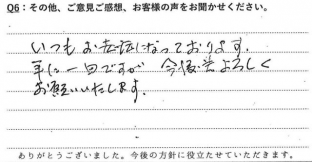 Q6：その他、ご意見ご感想、お客様の声をお聞かせください。
いつもお世話になっております。
年に一回ですが 今後共よろしく
お願いいたします。
ありがとうございました。今後の方針に役立たせていただきます。